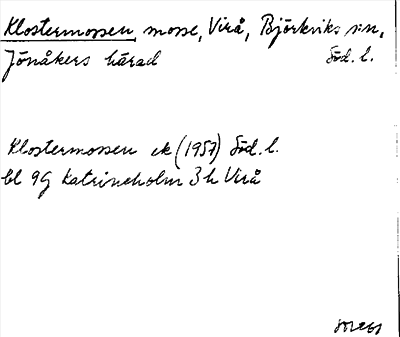 Klostermossen, mosse, Virå, Björkviks sn,
Jönåkers härad Söd. l.
Klostermossen ek (1957) Söd. l.
bl 9G Katrineholm 3h Virå